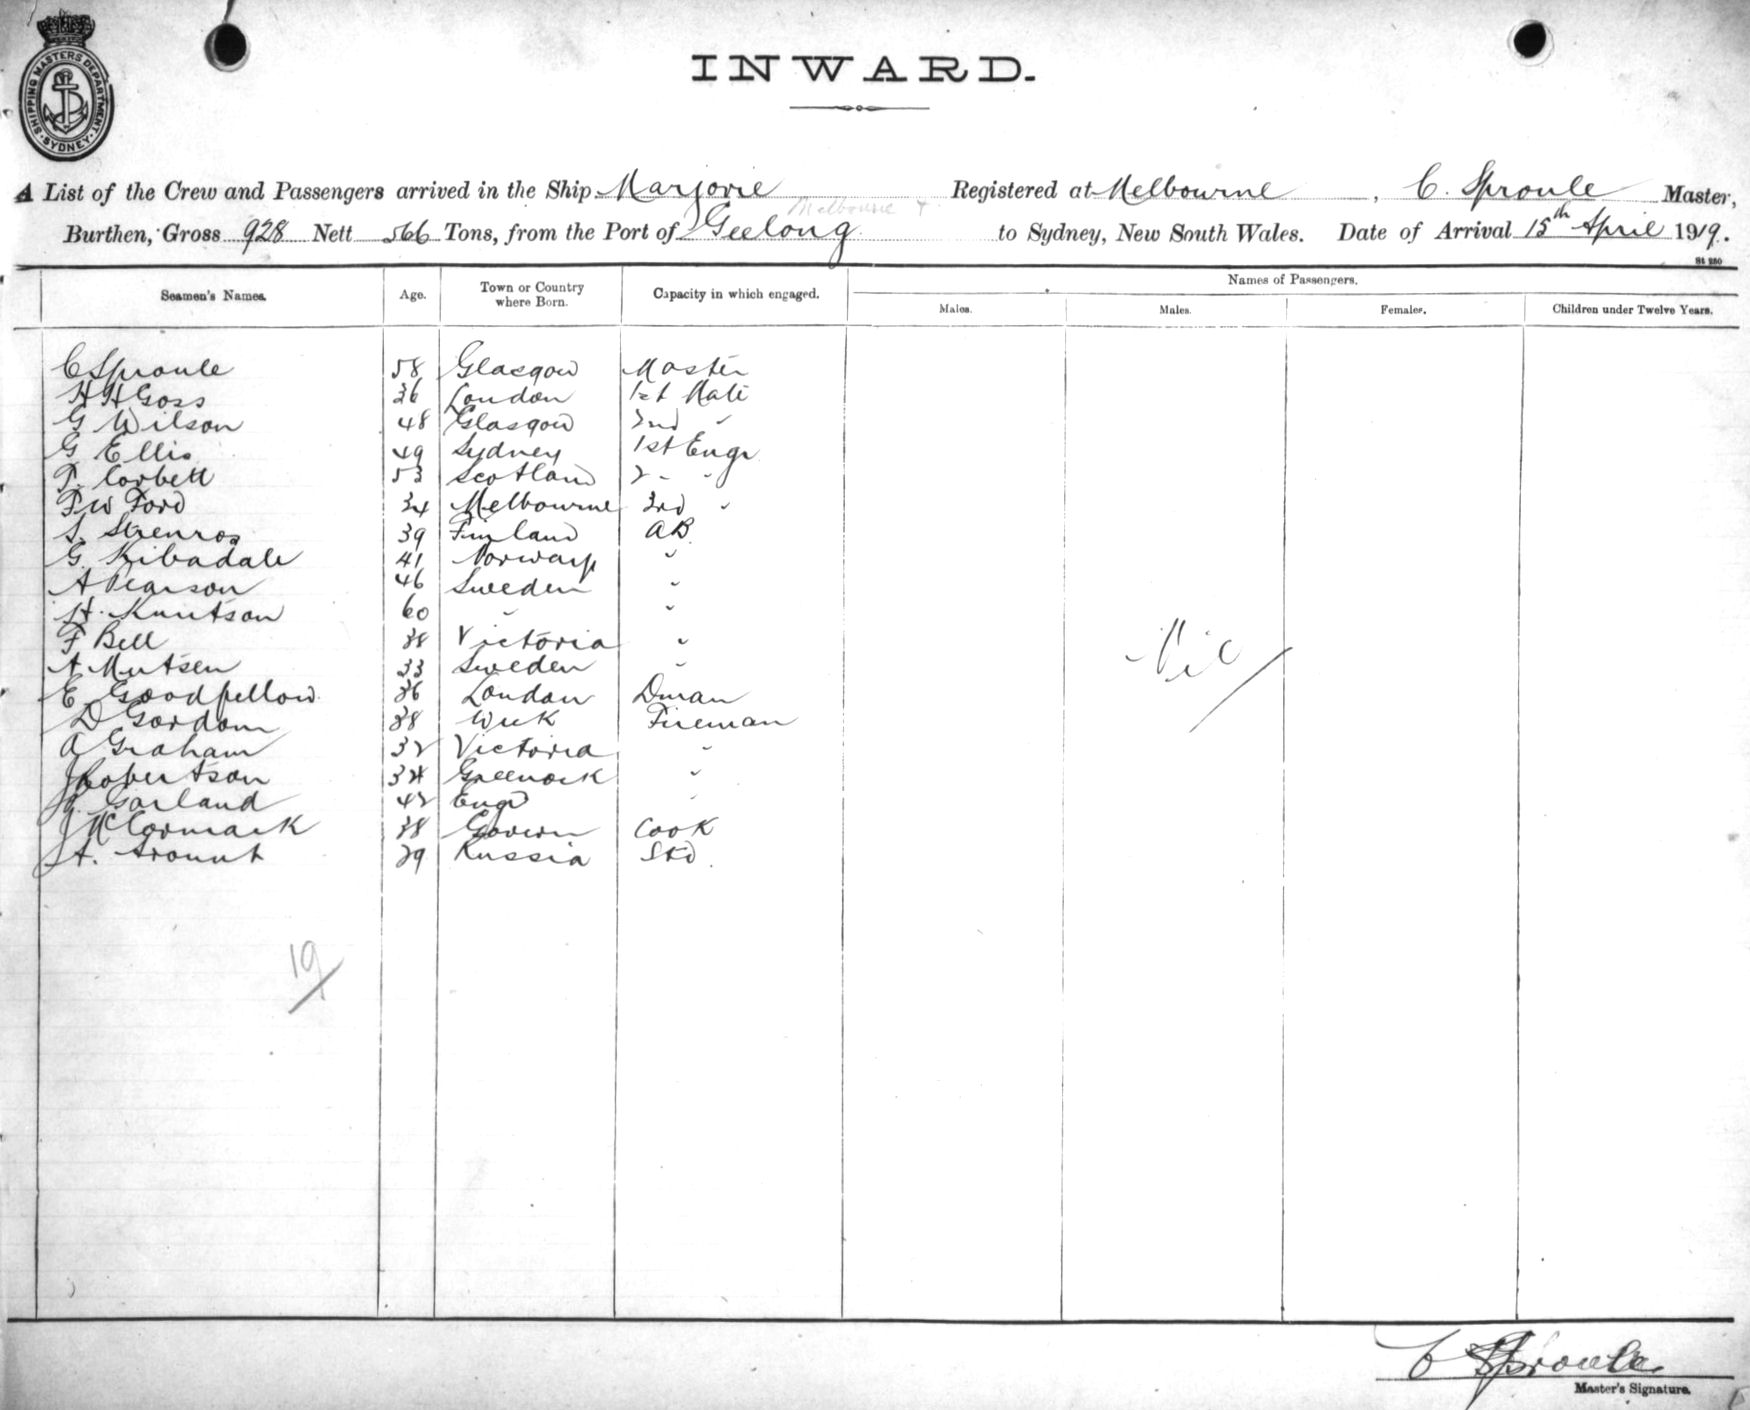 SHIPPING MASTERS DEPARTMENT
SYDNEY
INWARD.
A List of the Crew and Passengers arrived in the Ship Marjorie Registered at Melbourne, C. Sproule Master,
Melbourne +
Burthen, Gross 928 Nett 566 Tons, from the Port of Geelong to Sydney, New South Wales. Date of Arrival 15th April 1919.
St 250
Seamen's Names. Age. Town or Country where Born. Capacity in which engaged. Names of Passengers.
Males. Males. Females. Children under Twelve Years.
C Sproule 58 Glasgow Master
H H Goss 36 London 1st Mate
G Wilson 48 Glasgow 2nd "
G Ellis 49 Sydney 1st Engr
T. Corbett 53 Scotland 2 " "
F W Ford 34 Melbourne 3rd "
S. 39 Finland AB
G. Kibadale 41 Norway "
A Pearson 46 Sweden "
H. Knutson 60 " "
F Bell 38 Victoria "
A Mutsen 33 Sweden "
E Goodfellow 36 London Dman
D Gordon 38 Wick Fireman
A Graham 32 Victoria "
J Robertson 34 Greenock "
Garland 42 Eng "
J McCormack 38 Cook
A. 29 Russia Std.
19
C Sproule
Master's Signature.